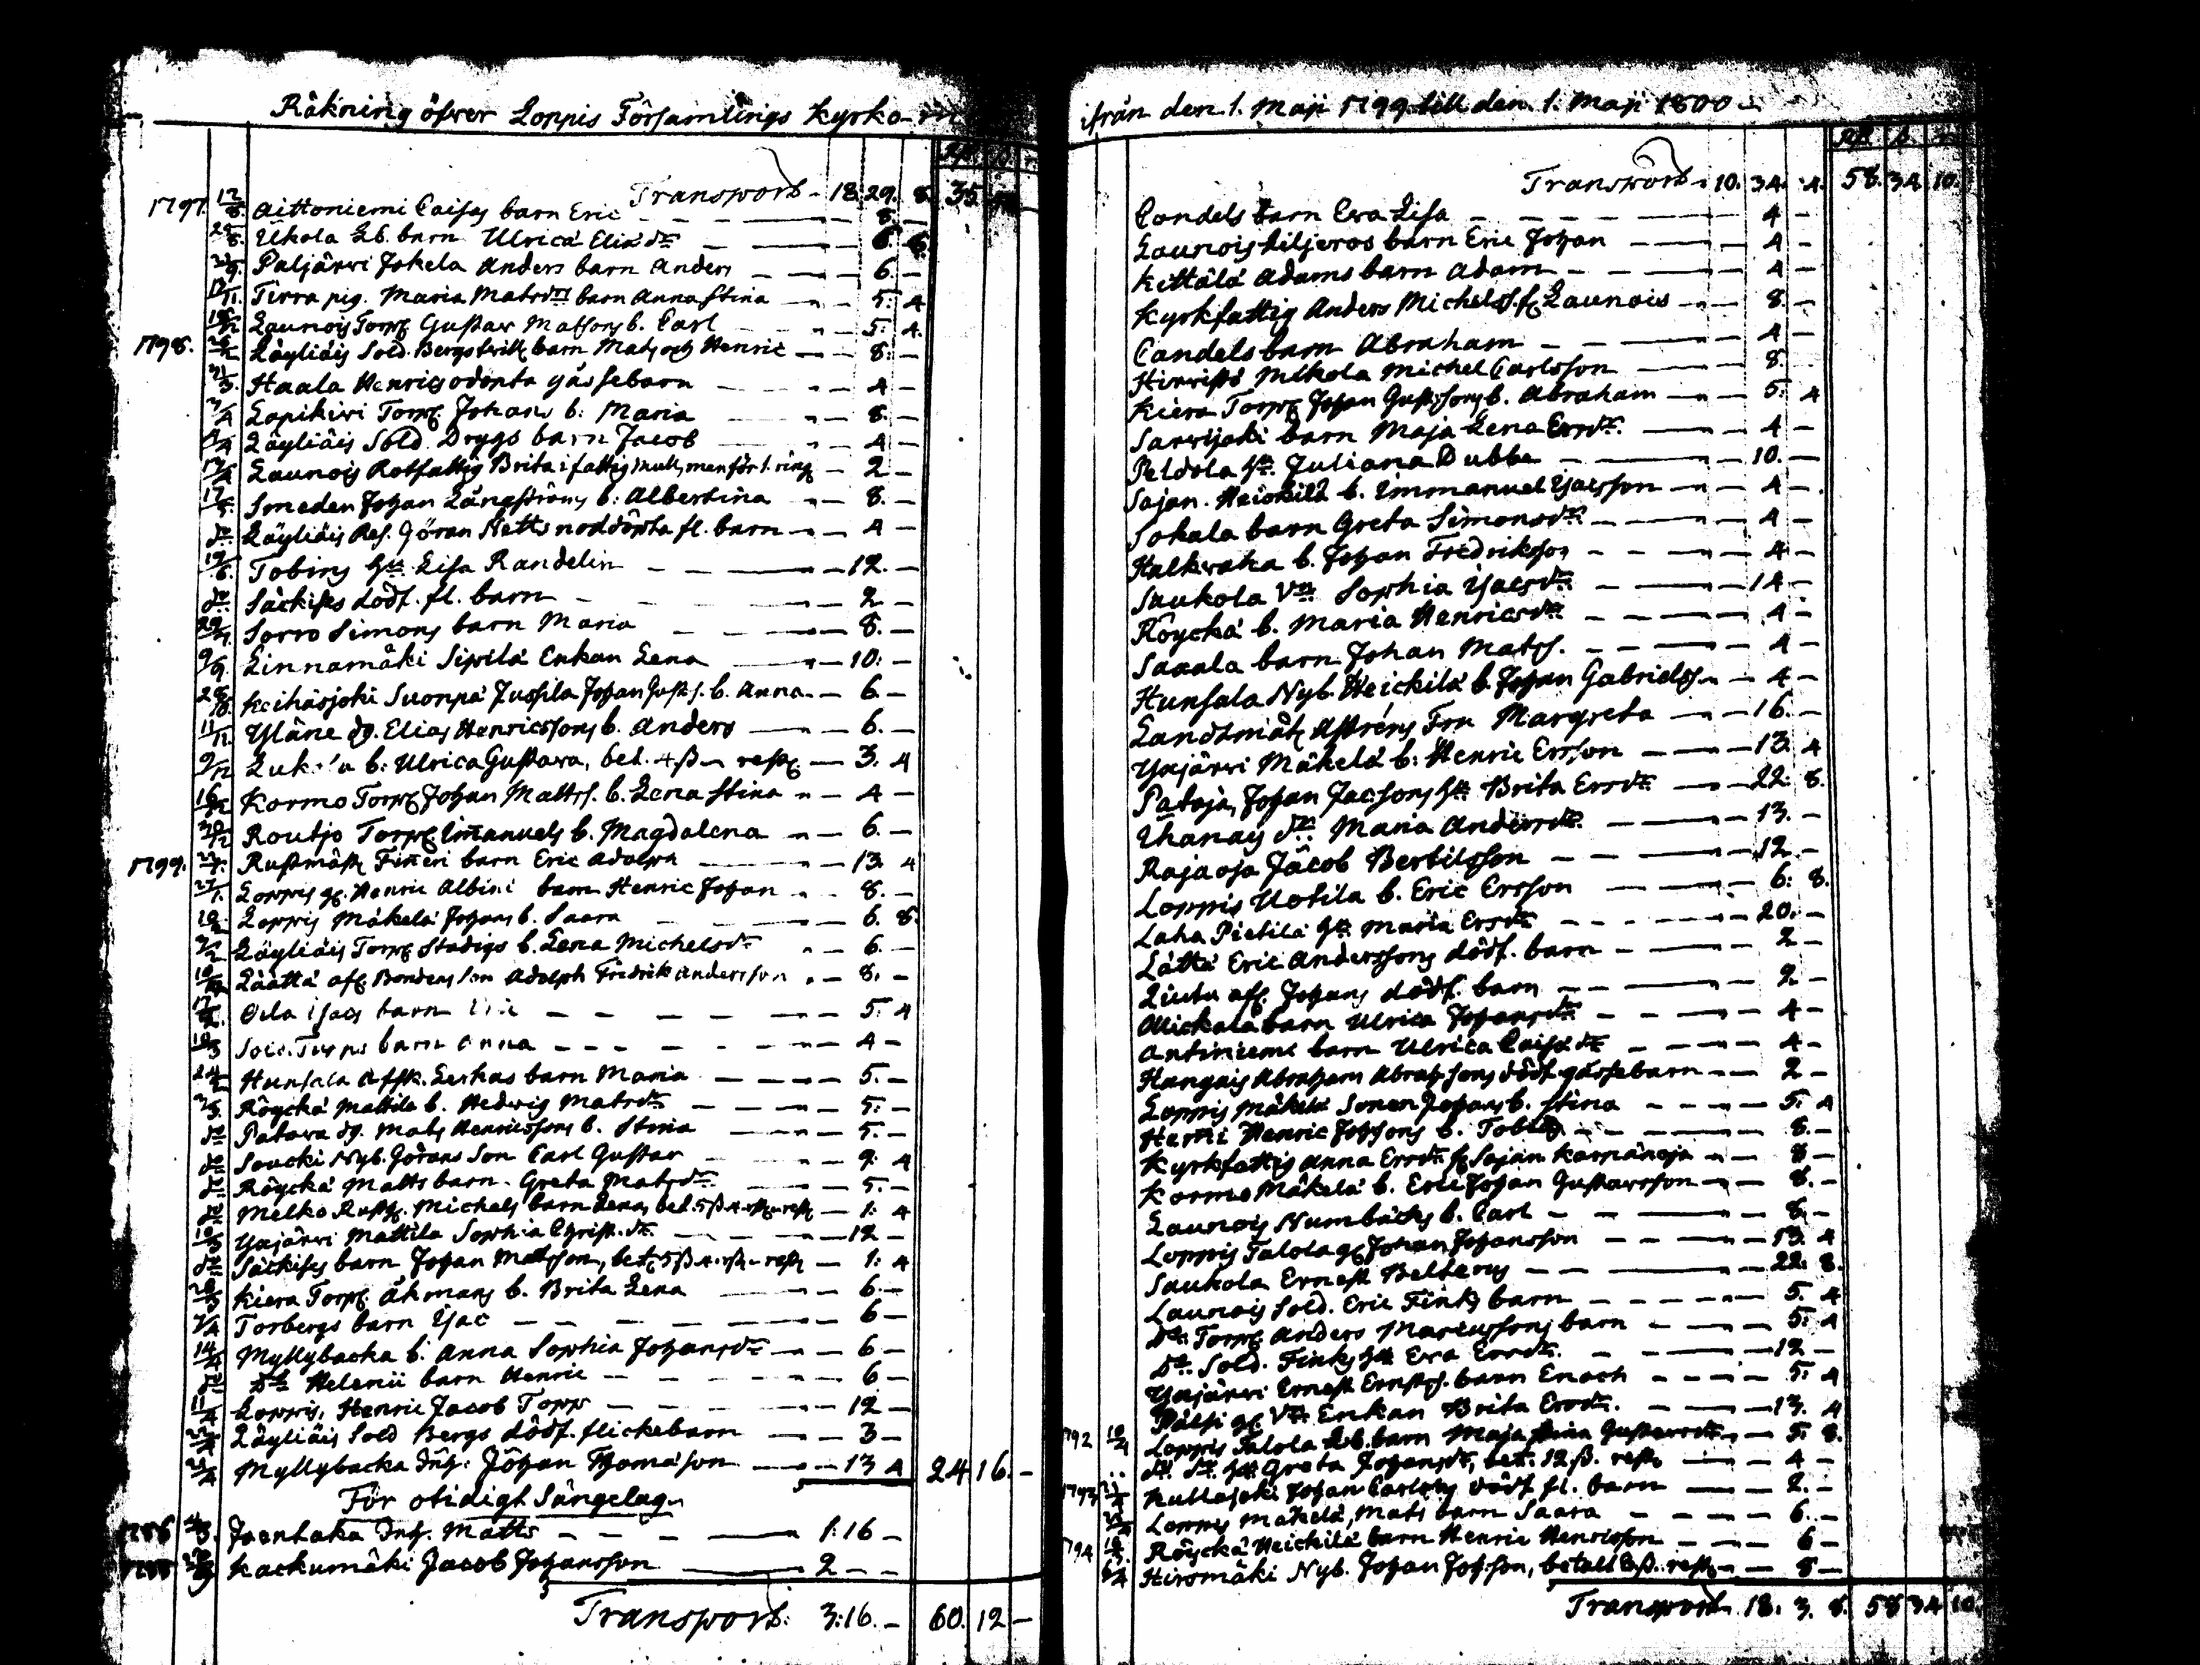 Räkning öfwer Loppis Församlings Kyrko-
Rdr. ß.
Transport - 18. 29. 8. 35.
1797. 12/8. Aittoniemi Caisas barn Eric - 8. -
Ukola Lb. barn Ulrica Eliædr - 6. 8.
Paljärwi Jokela Anders barn Anders - 6. -
Tirra pig. Maria Matsdrs barn Anna Stina - 5. 4
Launois Torp. Gustaf Matsons b. Carl - 5. 4.
1798. Läyliäis Sold. Bergs barn Mats och Henric - 8. -
Haala Henrics odöpta gåssebarn - 4 -
Lapikiwi Torp. Johans b. Maria - 8. -
Läyliäis Sold. Drygs barn Jacob - 4 -
Launois Rotfattig Brita i fattig mull, men för 1. ring. - 2 -
17/5. Smeden Johan Långströms b. Albertina - 8. -
do Läyliäis Göran odöpta fl. barn - 4 -
19/6. Tobins hu Lisa Randelin - 12. -
do Säckises dödf. fl. barn - 2 -
Sorro Simons barn Maria - 8. -
9/9. Linnamäki Sipilä Enkan Lena - 10. -
Keihäsjoki Suonpä Jussila Johan Gusts. b. Anna - 6 -
Yläne dg. Elias Henricssons b. Anders - 6. -
9/12 b. Ulrica Gustava, bet. 4 ß - rest. - 3. 4
Kormo Torp. Johan Mattss. b. Lena Stina - 4 -
Routjo Torp. Imanuels b. Magdalena - 6. -
1799. Rustmäst. barn Eric Adolph - 13. 4
Loppis Henric Albini barn Henric Johan - 8. -
Loppis Mäkelä Johans b. Saara - 6. 8.
Läyliäis Torp. Stadigs b. Lena Michelsdr - 6. -
Läättä afsk. Bondens Son Adolph Fredrik Andersson - 8. -
Isacs barn - 5. 4
barn Anna - 4 -
Hunsala Afsk. Lerkas barn Maria - 5. -
Röyckä Mattila b. Hedwig Matsdr - 5. -
do Patava dg. Mats Henricssons b. Stina - 5. -
do Soucki Nyb. Görans Son Carl Gustav - 9. 4
do Röyckä Matts barn Greta Matsdr - 5. -
do Melko Rusth. Michels barn Lena, bet. 5 ß 4 rst. rest. - 1. 4
Yxjärwi Mattila Sophia Christ.dr - 12 -
do Säckises barn Johan Matsson, bet. 5 ß 4 rst. rest. - 1. 4
Kiera Torp. Åkmans b. Brita Lena - 6. -
Torbergs barn Isac - 6 -
Myllybacka b. Anna Sophia Johansdr - 6 -
do Do Helenii barn Henric - 6 -
Loppis, Henric Jacob Topp - 12 -
Läyliäis Sold Bergs dödf. flickebarn - 3 -
Myllybacka Inh. Johan Thomasson - 13 4 24 16. -
För otidigt Sängelag.
1786 Joentaka Inh. Matts - 1. 16 -
Kackumäki Jacob Johansson - 2 - -
Transport: 3. 16. - 60. 12 -
ifrån den 1. Maji 1799 till den 1. Maji 1800 -
Rdr. ß.
Transport - 10. 34. 4. 58. 34. 10.
Candels barn Ewa Lisa - 4 -
Launois Liljeros barn Eric Johan - 4 -
Kittälä Adams barn Adam - 4 -
Kyrkfattig Anders Michelss. f. Launois - 8. -
Candels barn Abraham - 4 -
Hirwistö Mikola Michel Carlsson - 8.
Kiera Torp. Johan Gustssons b. Abraham - 5. 4
Sarwijoki barn Maja Lena Ersdr. - 4 -
Peldola hu Juliana Dubbe - 10. -
Sajan. Heickilä b. Immanuel Isacsson - 4 -
Sokala barn Greta Simonsdr - 4 -
Halkwaha b. Johan Fredriksson - 4 -
Saukola Vn Sophia Isacsdr - 14 -
Röyckä b. Maria Henricsdr - 4 -
Saaala barn Johan Matss. - 4 -
Hunsala Nyb. Heickilä b. Johan Gabrielss. - 4 -
Landtmät. Fru Margreta - 16. -
Yxjärwi Mäkelä b. Henric Ersson - 13. 4
Pataja, Johan Jacssons hu Brita Ersdr - 22. 8.
Uhanais dr. Maria Andersdr - 13. -
Rajaoja Jacob Bertilsson - 12. -
Loppis Uotila b. Eric Ersson - 6. 8.
Laha Pietilä hu Maria Ersdr - 20. -
Lättä Eric Anderssons dödf. barn - 2 -
afsk. Johans dödf. barn - 2 -
barn Ulrica Johansdr - 4 -
Antiniemi barn Ulrica Caisædr - 4 -
Hangais Abraham Abrahssons dödf. gåssebarn - 2 -
Loppis Mäkelä Sonen Johans b. Stina - 5. 4
Henric Johssons b. Tobias - 8. -
Kyrkfattig Anna Ersdr f. Sajan. Karpänoja - 8 -
Kormo Mäkelä b. Eric Johan Gustavsson - 8. -
Launois Numbäcks b. Carl - 8. -
Loppis Talola Johan Johansson - 13. 4
Saukola Ernest Beltens - 22. 8.
Launois Sold. Eric Finks barn - 5. 4
Do Torp. Anders Marcussons barn - 5. 4
Do Sold. Finks hu Eva Ersdr. - 12 -
Yxjärwi Ernest Ernsts. barn Enoch - 5. 4
Pälsi Enkan Brita Ersdr. - 13. 4
1792 Loppis Talola Lb. barn Maja Stina Gustavsdr - 5. 8.
do do hu Greta Johansdr, bet. 12 ß. rest. - 4 -
1793 Kullajoki Johan Carlsons dödf. fl. barn - 2. -
Loppis Mäkelä, Mats barn Saara - 6. -
1794 Röyckä Heickilä barn Henric Henricsson - 6 -
Hirsmäki Nyb. Johan Johsson, betalt 8 ß. rest. - 8 -
Transport. 18. 3. 8. 58 34 10.